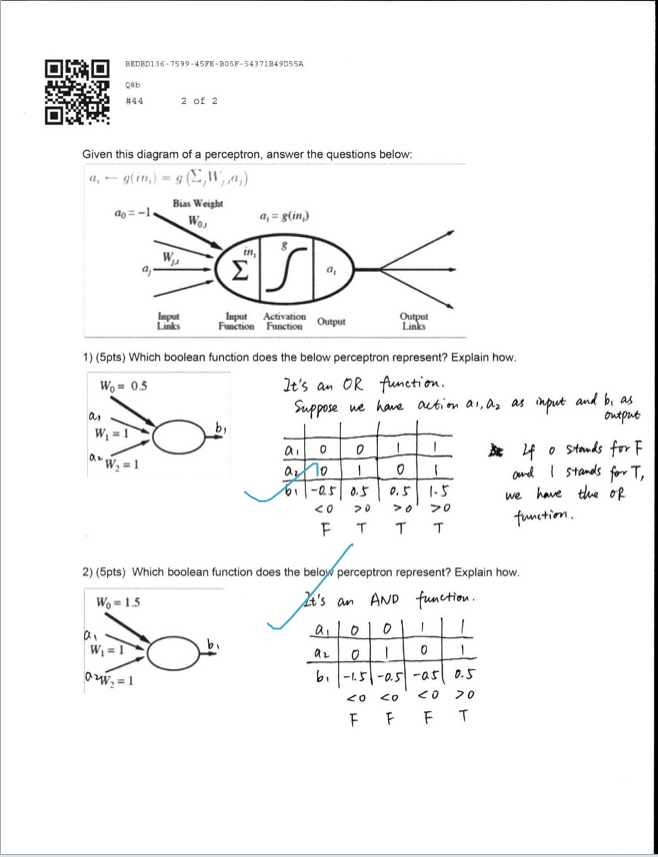 BEDBD136-7599-45FE-B05F-54371B49D55A
Q8b
#44 2 of 2
Given this diagram of a perceptron, answer the questions below:
aᵢ ← g(inᵢ) = g(Σⱼ Wⱼ,ᵢ aⱼ)
Bias Weight
a₀ = −1
W₀,ᵢ
aᵢ = g(inᵢ)
inᵢ
g
Wⱼ,ᵢ
aⱼ
Σ
aᵢ
Input Links
Input Function
Activation Function
Output
Output Links
1) (5pts) Which boolean function does the below perceptron represent? Explain how.
W₀ = 0.5
a₁
W₁ = 1
b₁
a₂
W₂ = 1
It's an OR function.
Suppose we have action a₁, a₂ as input and b₁ as
output
a₁ 0 0 1 1
a₂ 0 1 0 1
b₁ -0.5 0.5 0.5 1.5
<0 >0 >0 >0
F T T T
If 0 stands for F
and 1 stands for T,
we have the OR
function.
2) (5pts) Which boolean function does the below perceptron represent? Explain how.
W₀ = 1.5
a₁
W₁ = 1
b₁
a₂
W₂ = 1
It's an AND function.
a₁ 0 0 1 1
a₂ 0 1 0 1
b₁ -1.5 -0.5 -0.5 0.5
<0 <0 <0 >0
F F F T